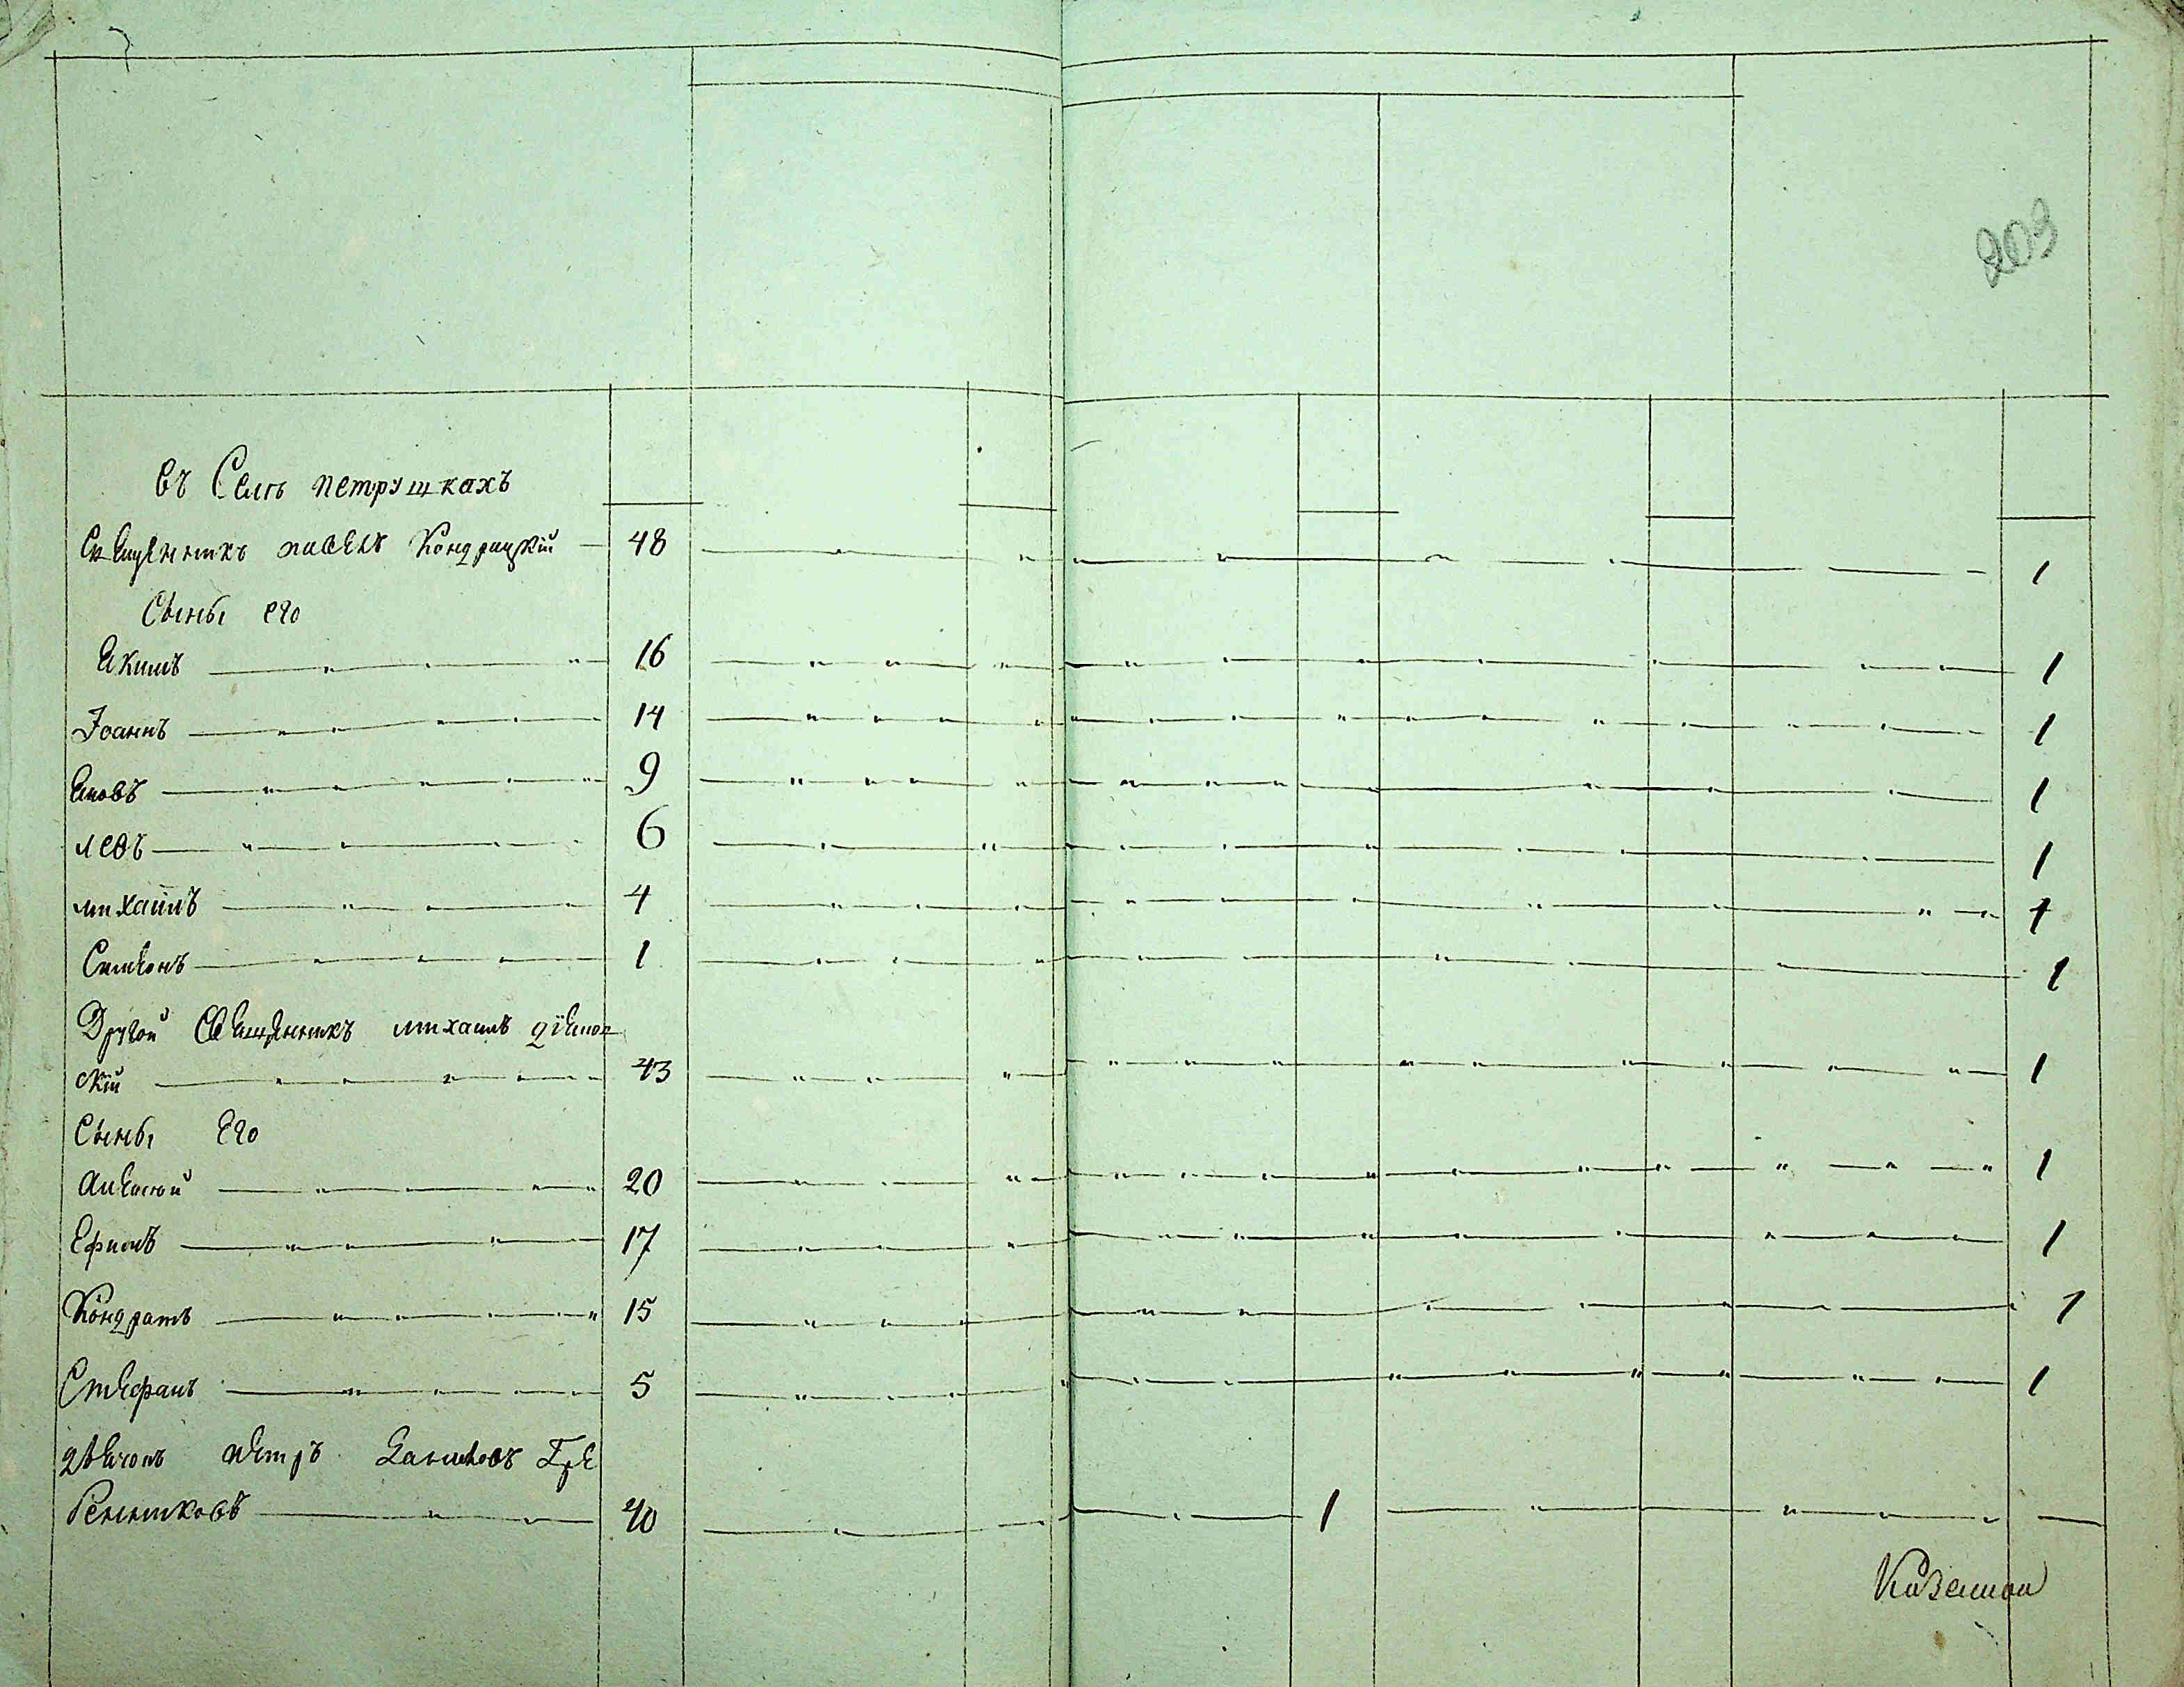 203
въ Селѣ петрушкахъ
Священникъ павелъ Кондрацкій 48 1
Сыны его
Якимъ 16 1
Іоаннъ 14 1
Яковъ 9 1
левъ 6 1
михаилъ 4 1
Симеонъ 1 1
Другой Священникъ михаилъ
скій 43 1
Сыны Его
Алексѣй 20 1
Ефимъ 17 1
Кондратъ 15 1
Стефанъ 5 1
дьячокъ петръ
40 1